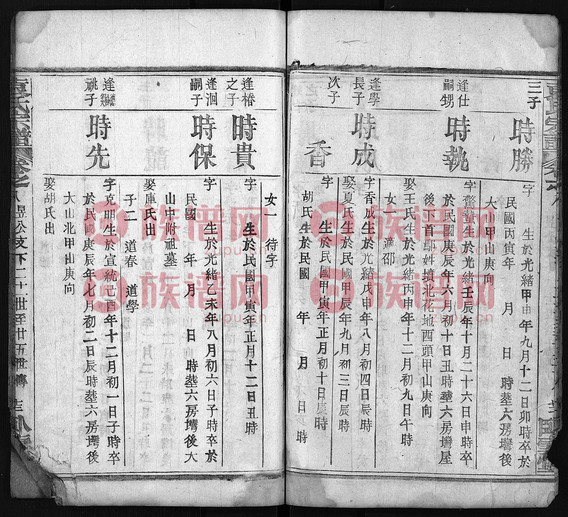 三子
時勝
字 生於光緒甲申年九月十二日卯時卒於
民國丙寅年 月 日 時塟六房壪後
大山甲山庚向
逢仕
嗣甥
時執
於民國庚辰年六月初十日辰時塟六房壪屋
後下首鄢姓墳北花地西頭甲山庚向
娶王氏生於光緒丙申年十二月初九日午時
逢學
長子
時成
字香成生於光緒戊申年八月初四日辰時
娶夏氏生於民國甲辰年九月初三日辰時
次子
香
字 生於民國甲寅年正月初十日辰時
胡氏生於民國 年 月 日 時
女一 待字
逢椿
之子
時貴
字 生於民國甲寅年正月十二日丑時
逢洄
嗣子
時保
字 生於光緒乙未年八月初六日子時卒於
民國 年 月 日 時塟六房壪後大
山中附祖墓
娶庫氏出
子二 道春 道學
逢
祧子
時先
字克明生於宣統己酉年十二月初一日子時卒
於民國庚辰年七月初二日辰時塟六房壪後
大山北甲山庚向
娶胡氏出
八 昱公支下二十一世至廿五世傳
族谱网